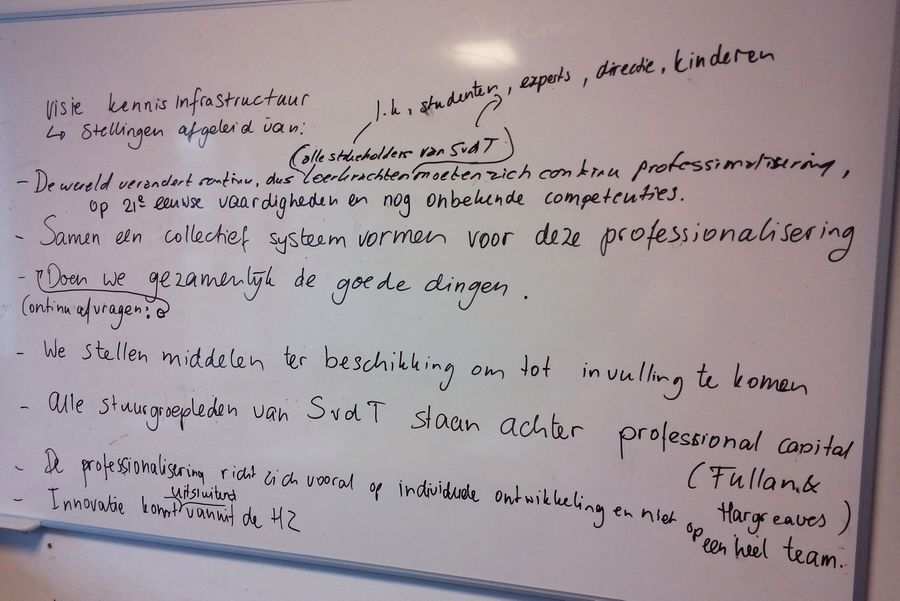 visie kennisinfrastructuur
↳ stellingen afgeleid van:
l.k, studenten, experts, directie, kinderen
(alle stakeholders van SvdT)
- De wereld verandert continu, dus leerkrachten moeten zich continu professionalisering,
op 21e eeuwse vaardigheden en nog onbekende competenties.
- Samen een collectief systeem vormen voor deze professionalisering
- Doen we gezamenlijk de goede dingen.
Continu afvragen:
- We stellen middelen ter beschikking om tot invulling te komen
- alle stuurgroepleden van SvdT staan achter professional capital
(Fullan &
Hargreaves)
- De professionalisering richt zich vooral op individuele ontwikkeling en niet op
een heel team.
uitsluitend
- Innovatie komt vanuit de HZ